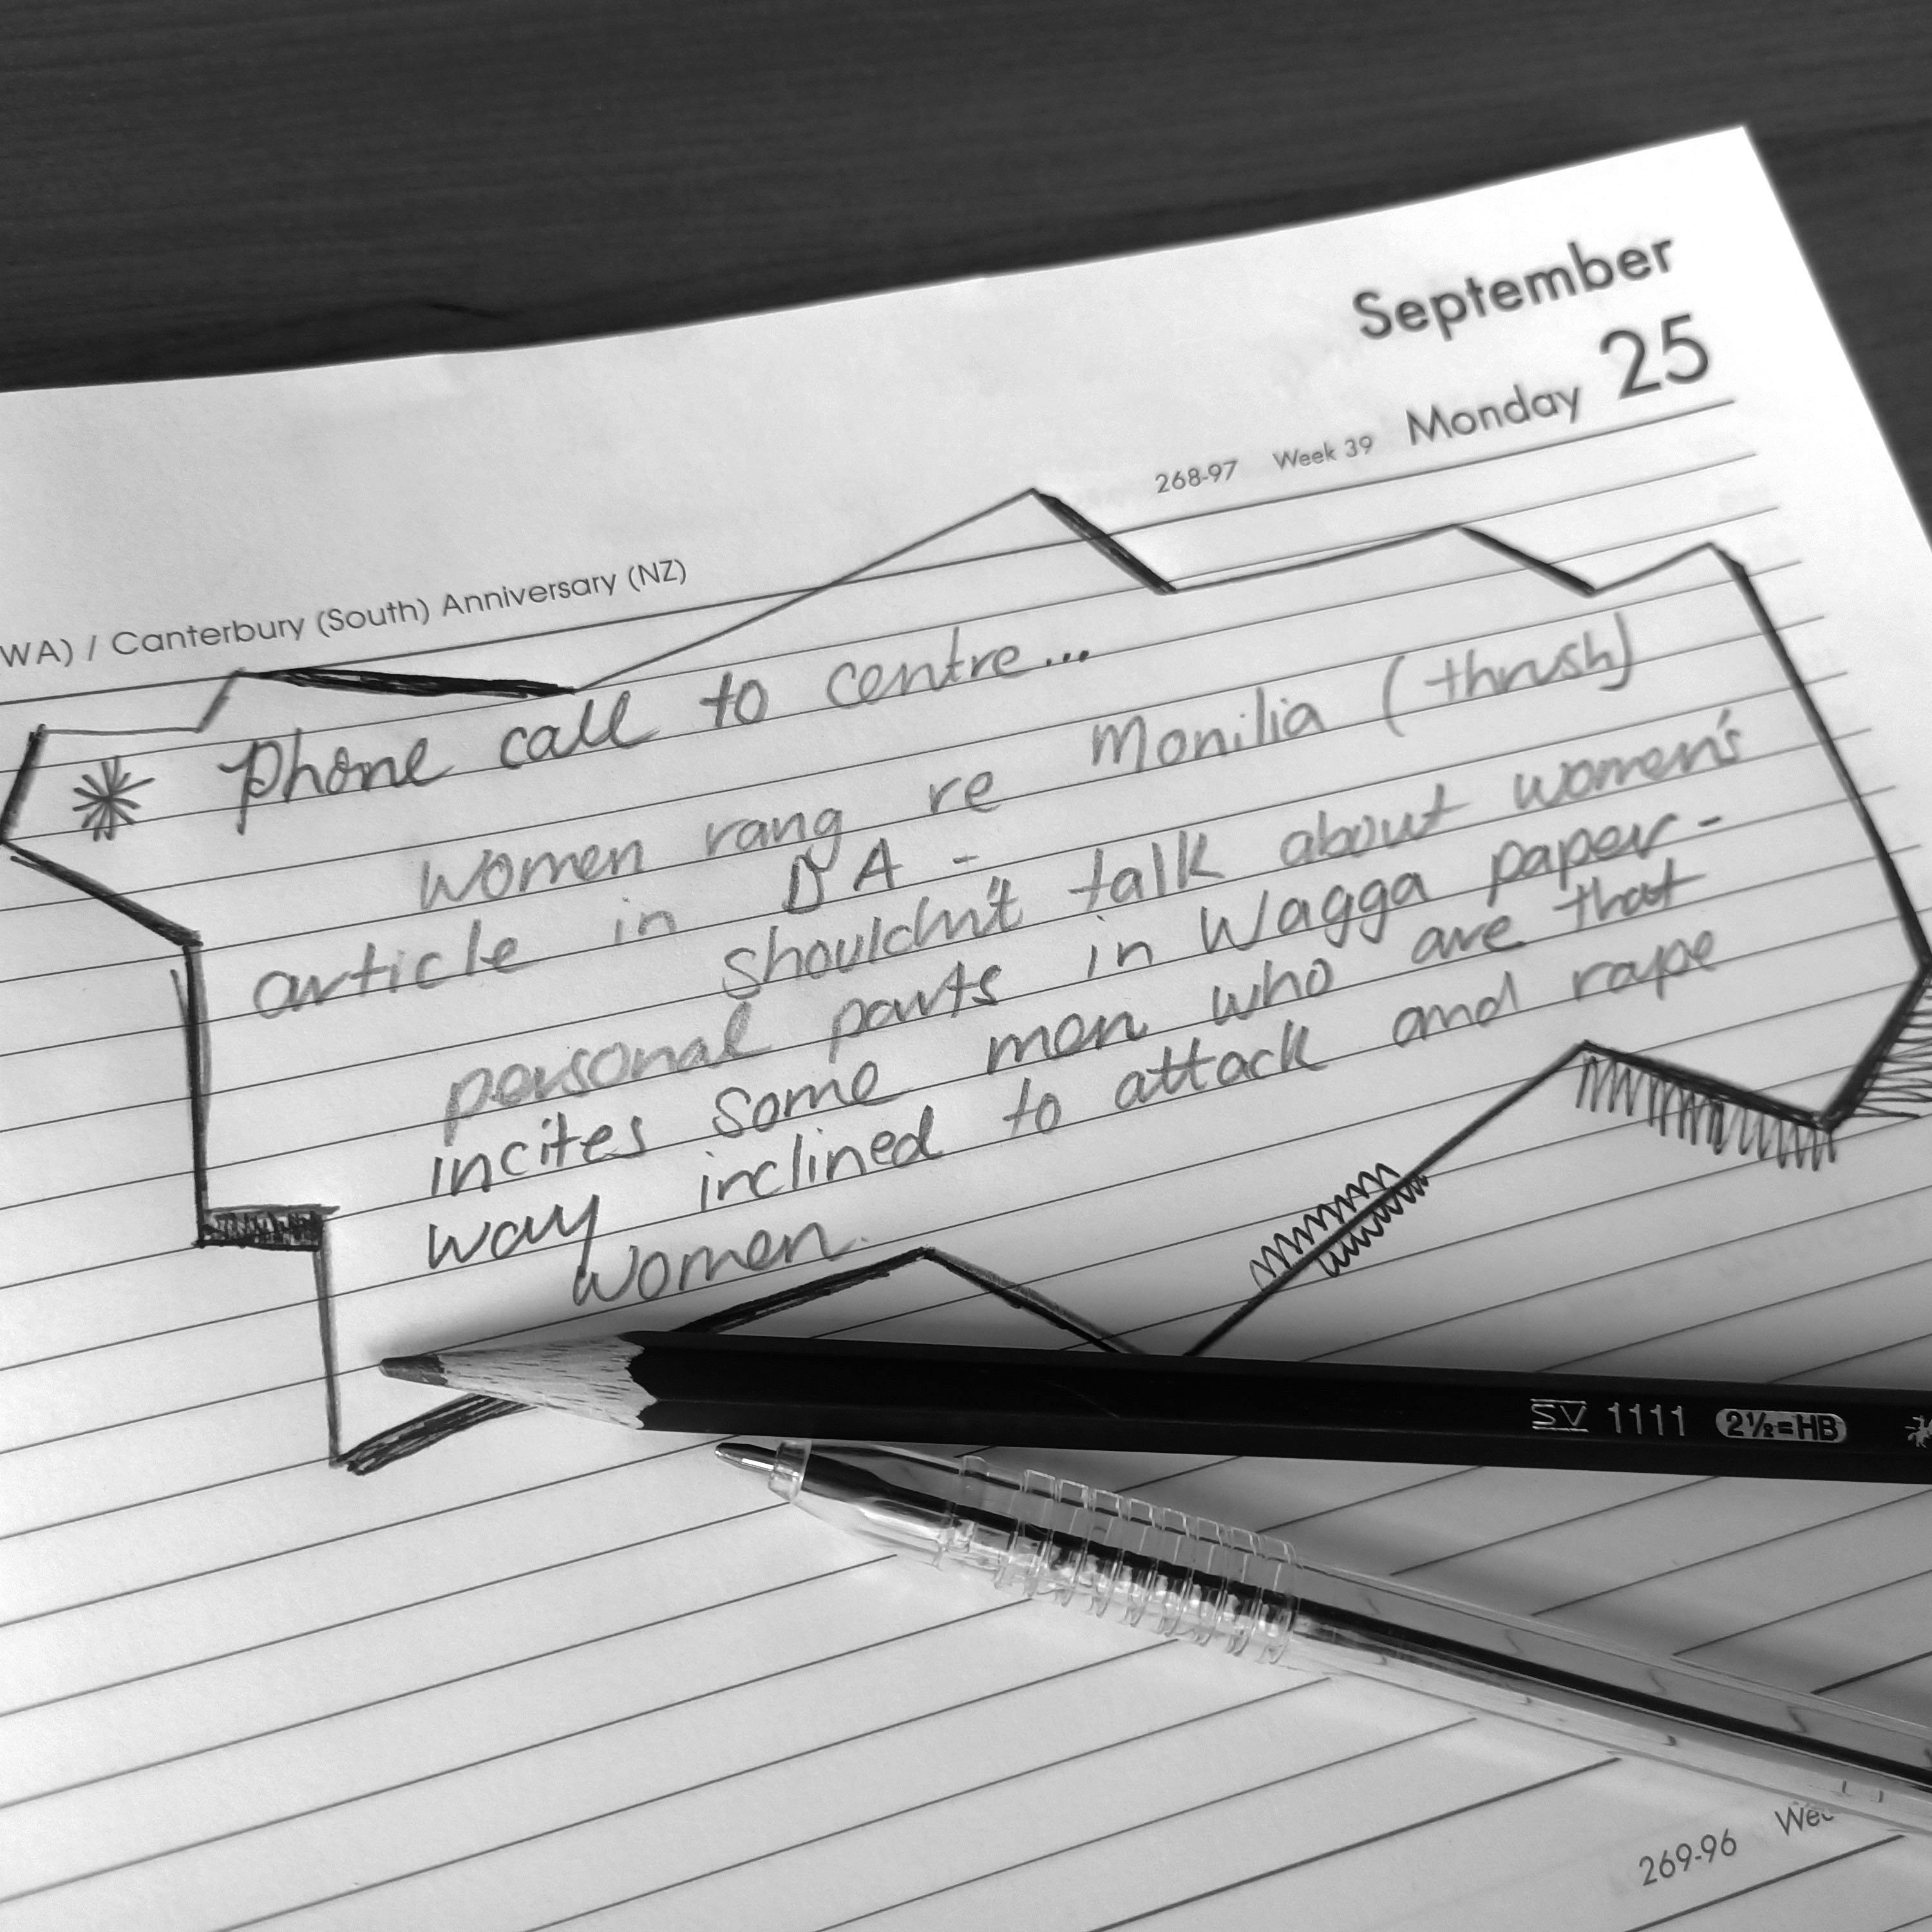 September
268-97 Week 39 Monday 25
WA) / Canterbury (South) Anniversary (NZ)
Phone call to centre...
Women rang re Monilia (thrush)
article in DA -
shouldn't talk about women's
personal parts in Wagga paper -
incites some men who are that
way inclined to attack and rape
women.
SV 1111 2½=HB
269-96